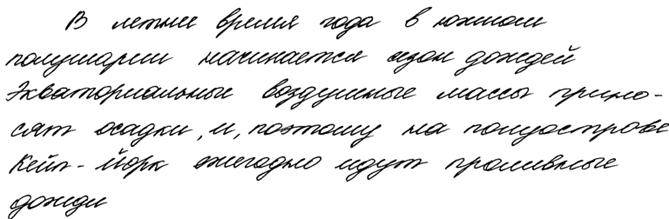 В летнее время года в южном
полушарии начинается сезон дождей
Экваториальные воздушные массы прино-
сят осадки, и, поэтому на полуострове
Кейп-Йорк ежегодно идут проливные
дожди